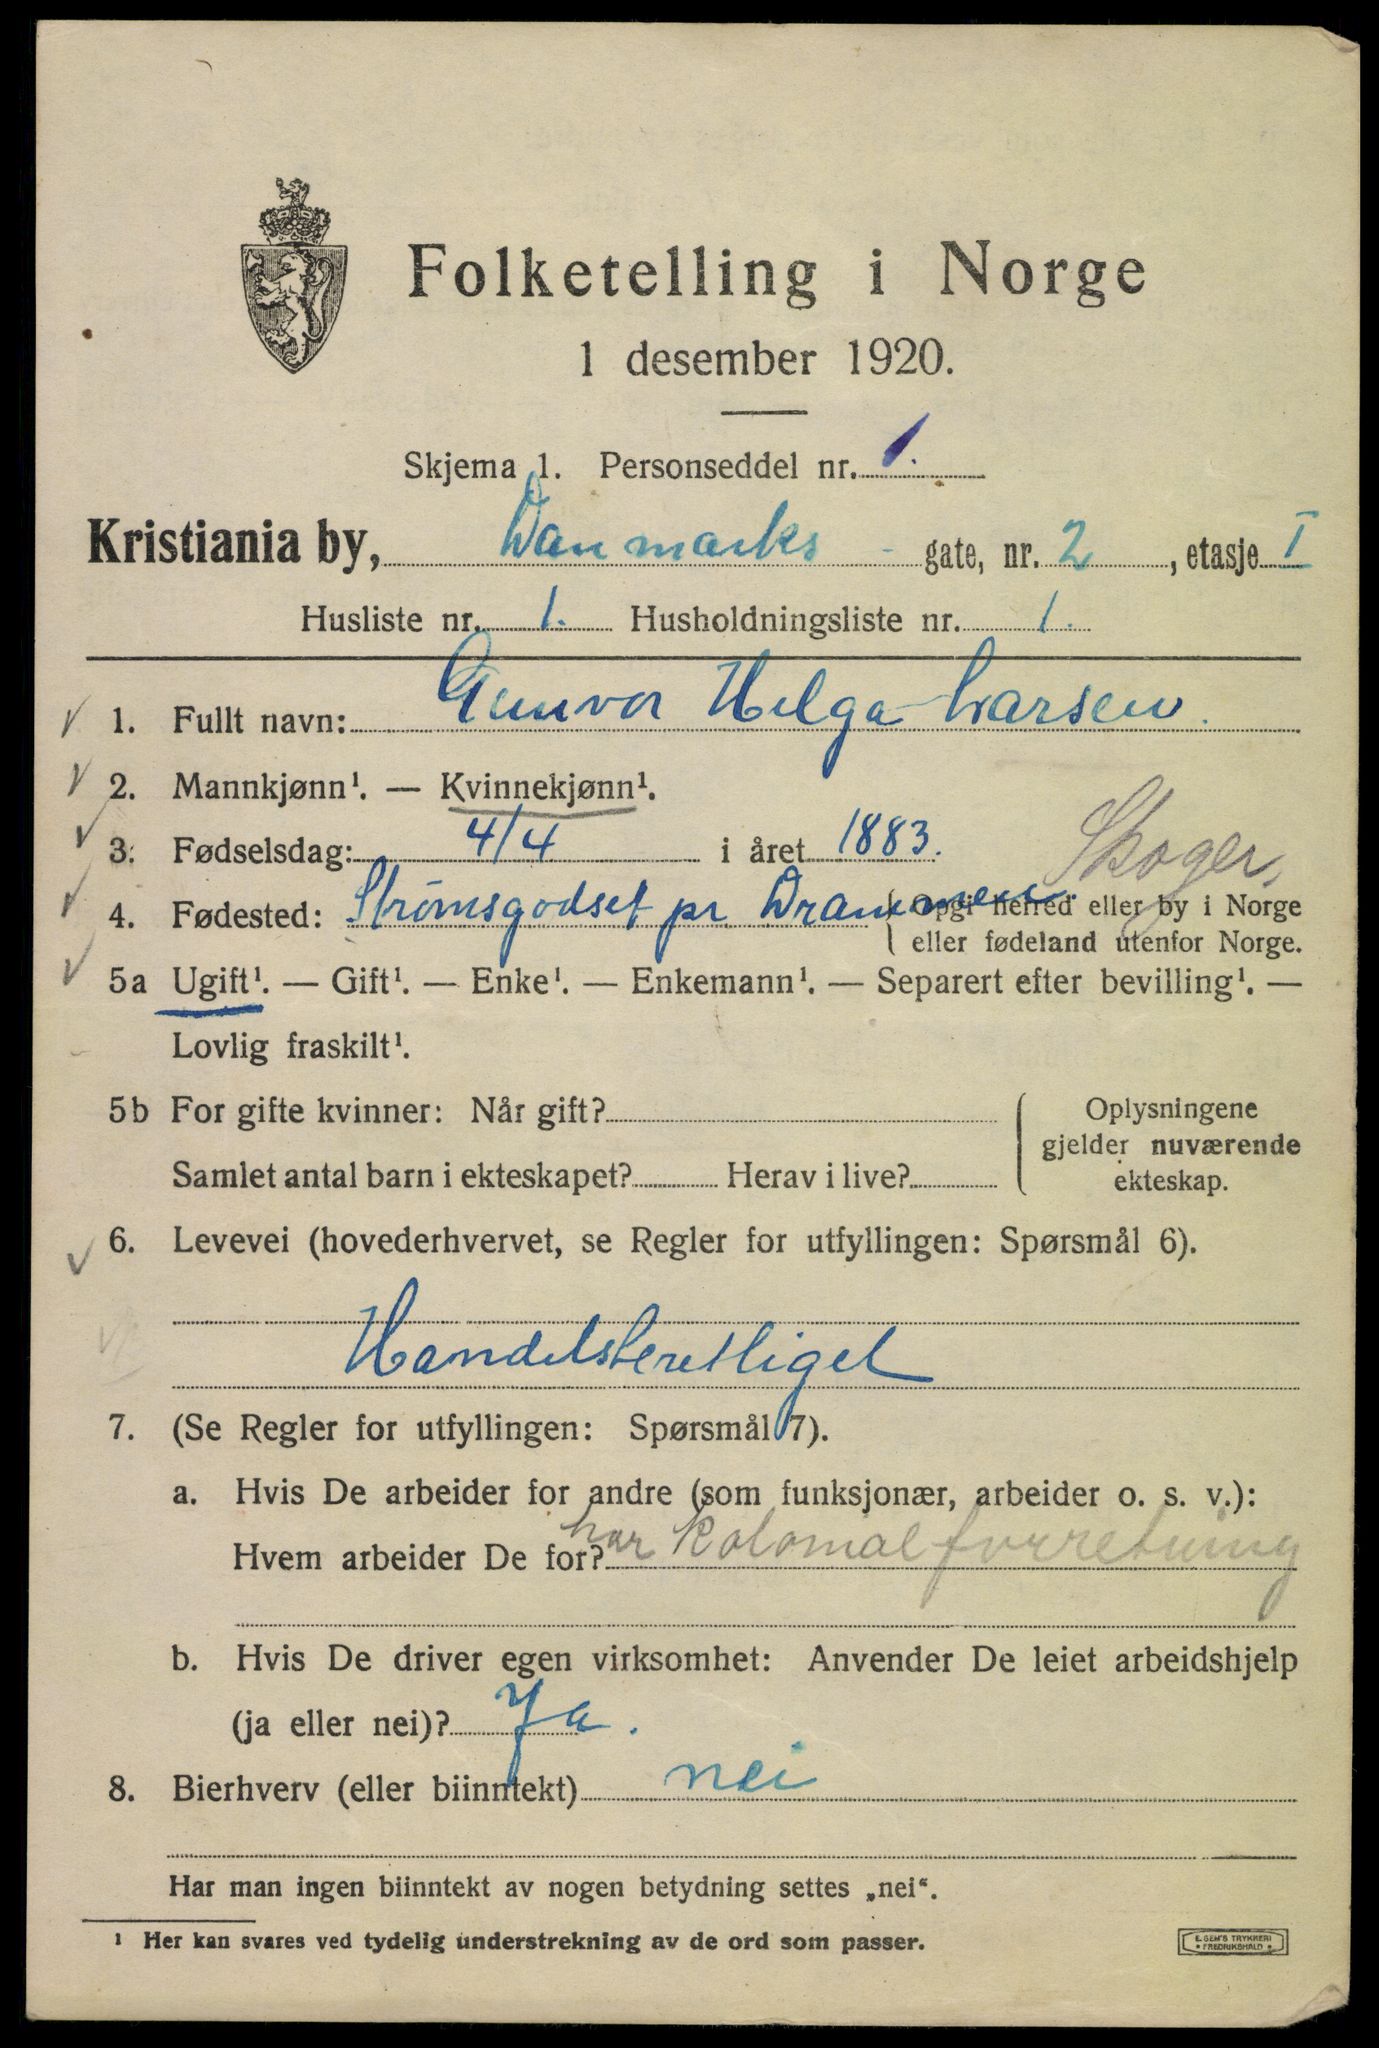 Folketelling i Norge
1 desember 1920.
Skjema 1. Personseddel nr. 1.
Kristiania by, Danmarks - gate, nr. 2, etasje I
Husliste nr. 1. Husholdningsliste nr. 1.
1. Fullt navn: Gunvor Helga Larsen.
2. Mannkjønn¹. — Kvinnekjønn¹.
3. Fødselsdag: 4/4 i året 1883.
Skoger.
4. Fødested: Strømsgodset pr Drammen. { Opgi herred eller by i Norge
eller fødeland utenfor Norge.
5a Ugift¹. — Gift¹. — Enke¹. — Enkemann¹. — Separert efter bevilling¹. —
Lovlig fraskilt¹.
5b For gifte kvinner: Når gift? { Oplysningene
gjelder nuværende
Samlet antal barn i ekteskapet? Herav i live? ekteskap.
6. Levevei (hovederhvervet, se Regler for utfyllingen: Spørsmål 6).
Handelsberettiget
7. (Se Regler for utfyllingen: Spørsmål 7).
a. Hvis De arbeider for andre (som funksjonær, arbeider o. s. v.):
Hvem arbeider De for? har kolonialforretning
b. Hvis De driver egen virksomhet: Anvender De leiet arbeidshjelp
(ja eller nei)? Ja.
8. Bierhverv (eller biinntekt) nei
Har man ingen biinntekt av nogen betydning settes „nei“.
¹ Her kan svares ved tydelig understrekning av de ord som passer.
E. SEM'S TRYKKERI
* FREDRIKSHALD *